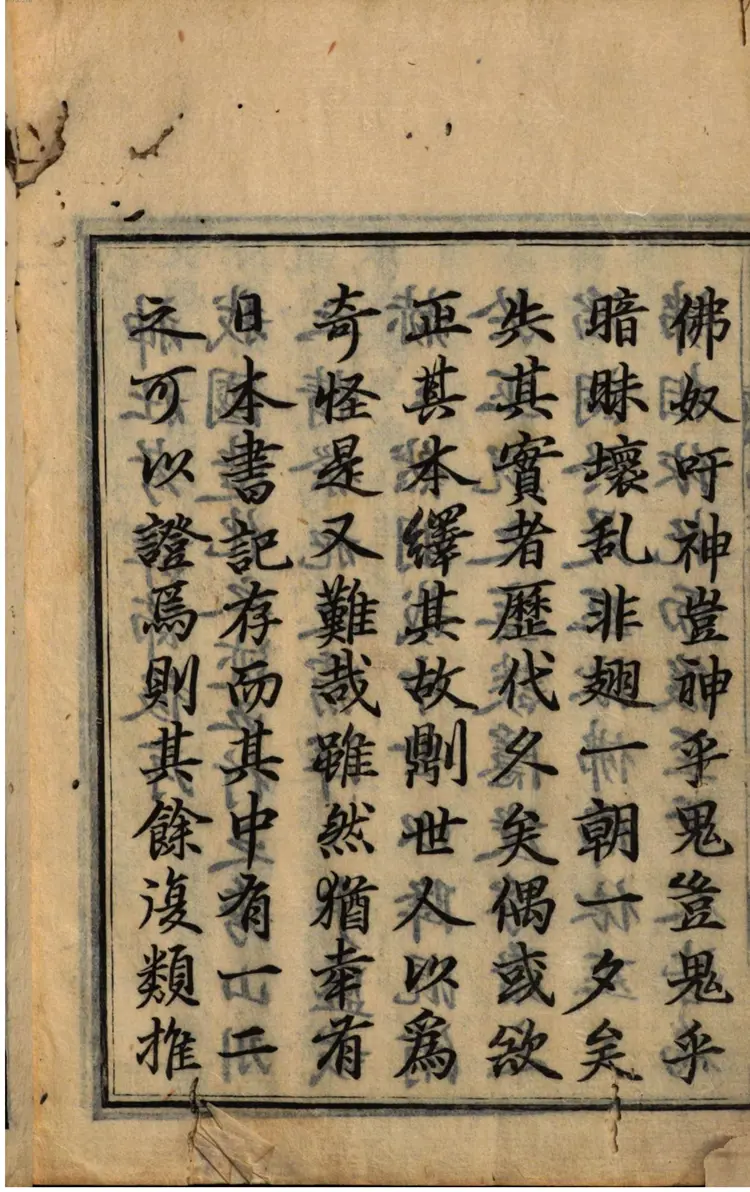 佛奴吁神豈神乎鬼豈鬼乎
暗昧壞乱非翅一朝一夕矣
失其實者歷代久矣偶或欲
正其本繹其故則世人以爲
奇怪是又難哉雖然猶幸有
日本書記存而其中有一二
之可以證焉則其餘復類推